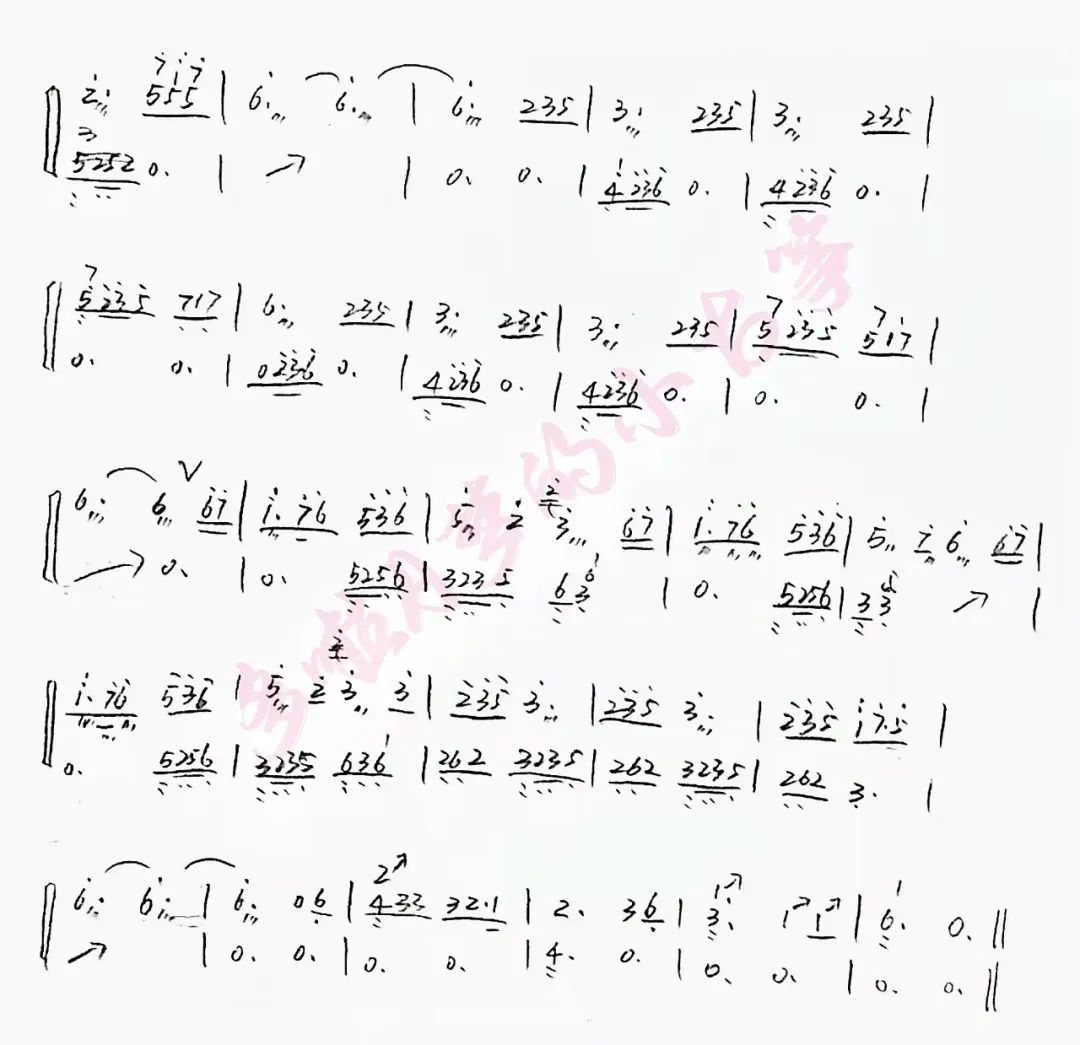 2. 555 | 6. 6. | 6. 235 | 3. 235 | 3. 235 |
5252 0. | ↗ | 0. 0. | 4236 0. | 4236 0. |
5235 717 | 6. 235 | 3. 235 | 3. 235 | 5235 517 |
0. 0. | 0236 0. | 4236 0. | 4236 0. | 0. 0. |
6. 6 V 67 | 1. 76 536 | 5 2 3 67 | 1. 76 536 | 5 7 6 67 |
0. | 0. 5256 | 3235 63 | 0. 5256 | 33 ↗ |
1. 76 536 | 5 2 3 3 | 235 3. | 235 3. | 235 17.5 |
0. 5256 | 3235 636 | 262 3235 | 262 3235 | 262 3. |
6. 6. | 6. 06 | 433 32.1 | 2. 36 | 3. 1 1 | 6. 0. ‖
↗ | 0. 0. | 0. 0. | 4. 0. | 0. 0. | 0. 0. ‖
多啦A爹的小B爹